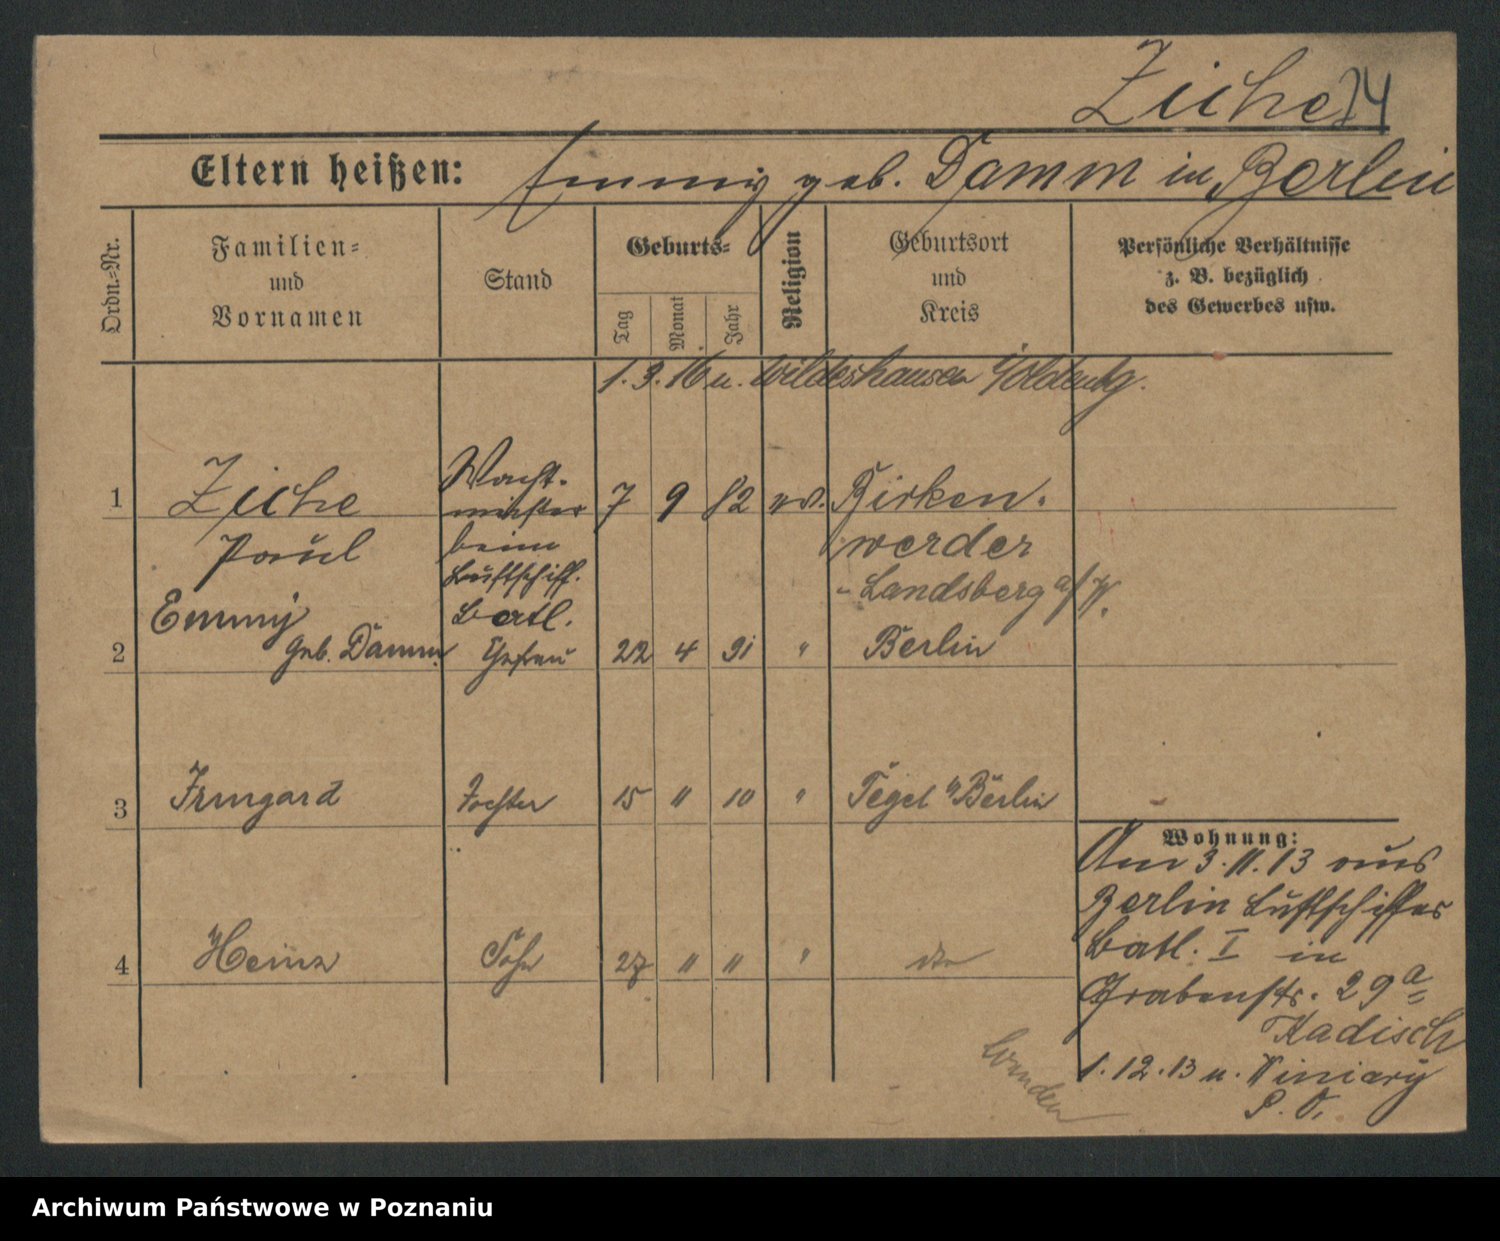 Ziche 74
Eltern heißen: Emmy geb. Damm in Berlin
Ordn.-Nr.
Familien-
und
Vornamen
Stand
Geburts-
Tag
Monat
Jahr
Religion
Geburtsort
und
Kreis
Persönliche Verhältnisse
z. B. bezüglich
des Gewerbes usw.
1.3.16 n. Wildeshausen i/Oldenbg.
1 Ziche Wacht- 7 9 82 ev. Birken-
Paul meister
beim werder
Luftschiff. Landsberg a/W.
Emmy Batl.
2 geb. Damm Ehefrau 22 4 91 " Berlin
3 Irmgard Tochter 15 " 10 " Tegel b/Berlin
Wohnung:
Am 3.11.13 aus
Berlin Luftschiffer
Batl. I in
4 Heinz Sohn 27 " " " dto
Grabenstr. 29a
Kadisch
1.12.13 n. Winiary
P. O.
Wenden
Archiwum Państwowe w Poznaniu